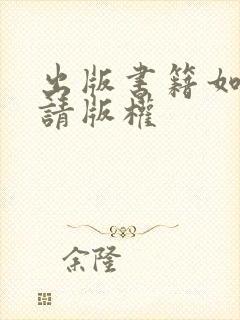 出版書籍如
請版權
余隆